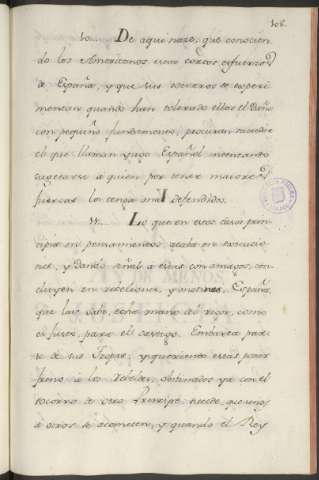 108.
10..... De aqui nace, que conocien
do los Americanos estos cortos esfuerzos
de España, y que sus socorros se experi
mentan quando han tolerado ellos el daño
con pequeño fundamento, procuran sacudir
el que llaman yugo Español intentando
sugetarse a quien por tener maiores
fuerzas los tenga mas defendidos.
11..... Lo que en estos casos prin
cipia en pensamientos acaba en execucio
nes, y dando señal a estas con amagos, con
cluyen en rebeliones, y motines. España,
que las sabe, echa mano del rigor, como
es justo, para el castigo. Embarca par
te de sus Tropas, y queriendo estas poner
freno a los rebeldes, obstinados ya con el
socorro de otro Principe, sucede que unos
a otros se acometen, y quando el Rey